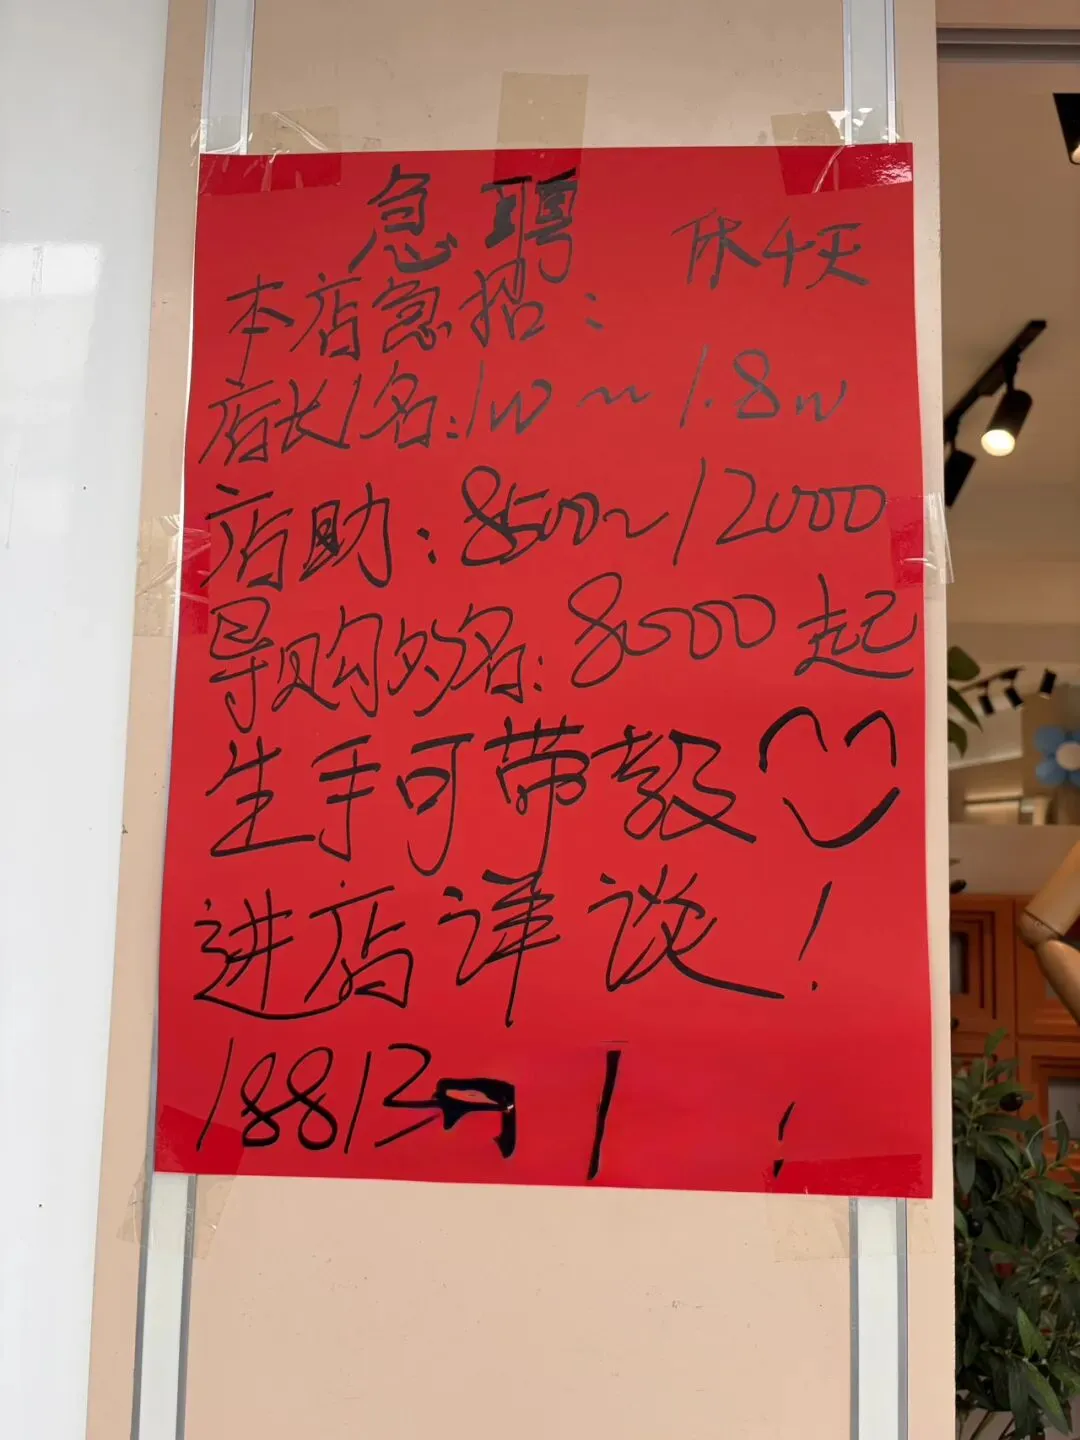 急聘
休4天
本店急招:
店长1名:1w~1.8w
店助:8500~12000
导购多名:8000起
生手可带教
进店详谈!
18813